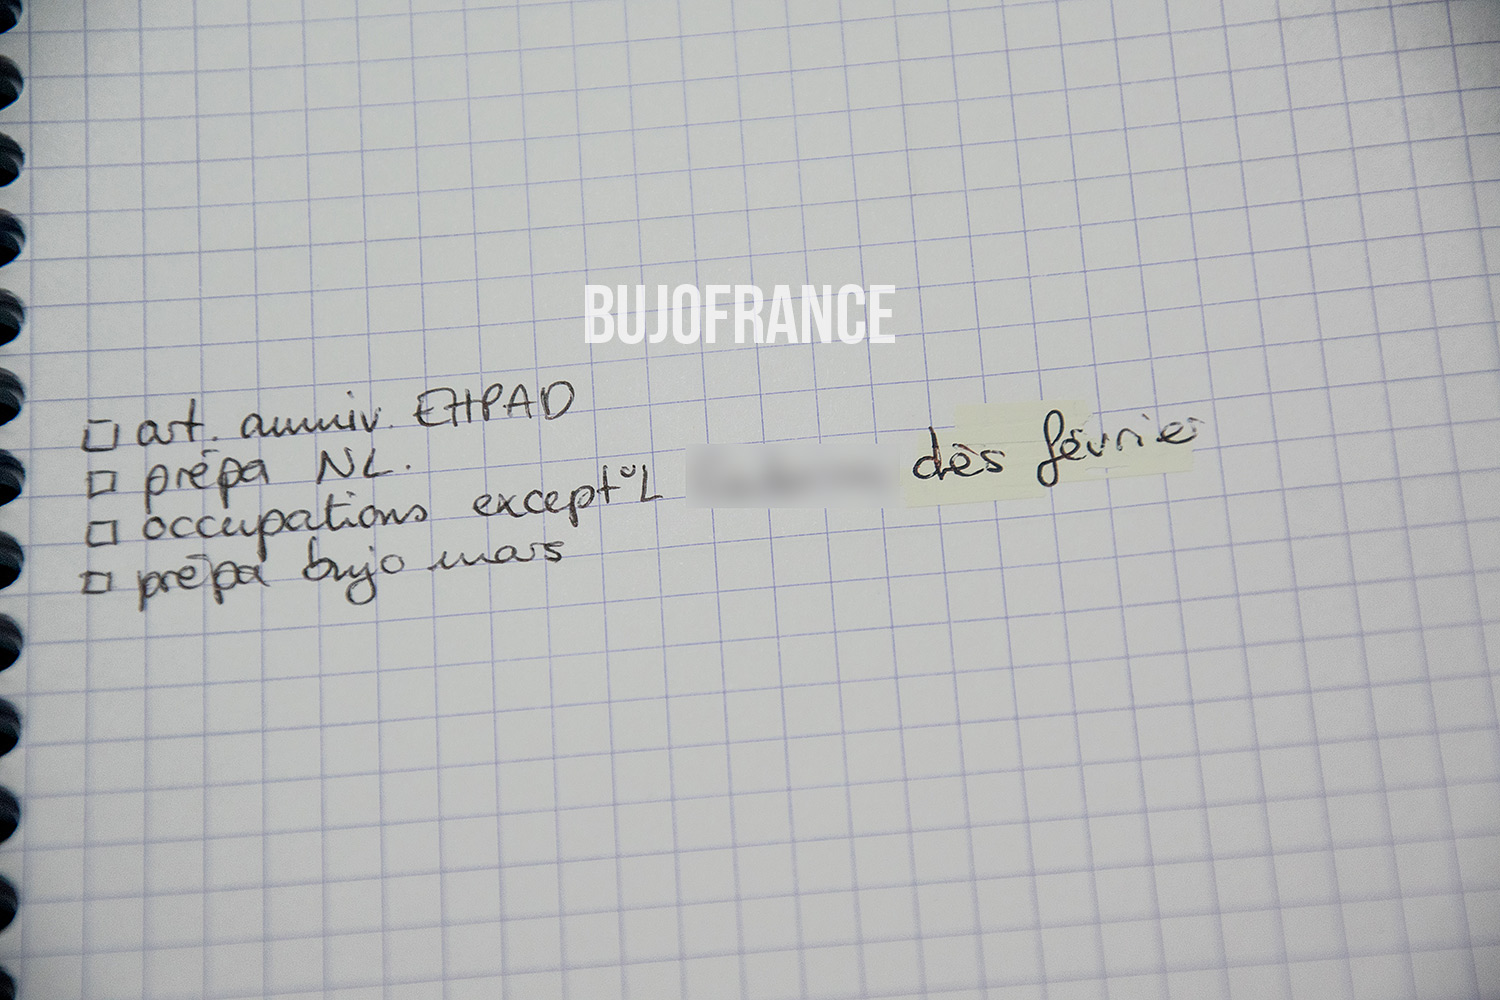 BUJOFRANCE
art. anniv. EHPAD
prépa NL.
occupations except°L dès février
prépa bujo mars